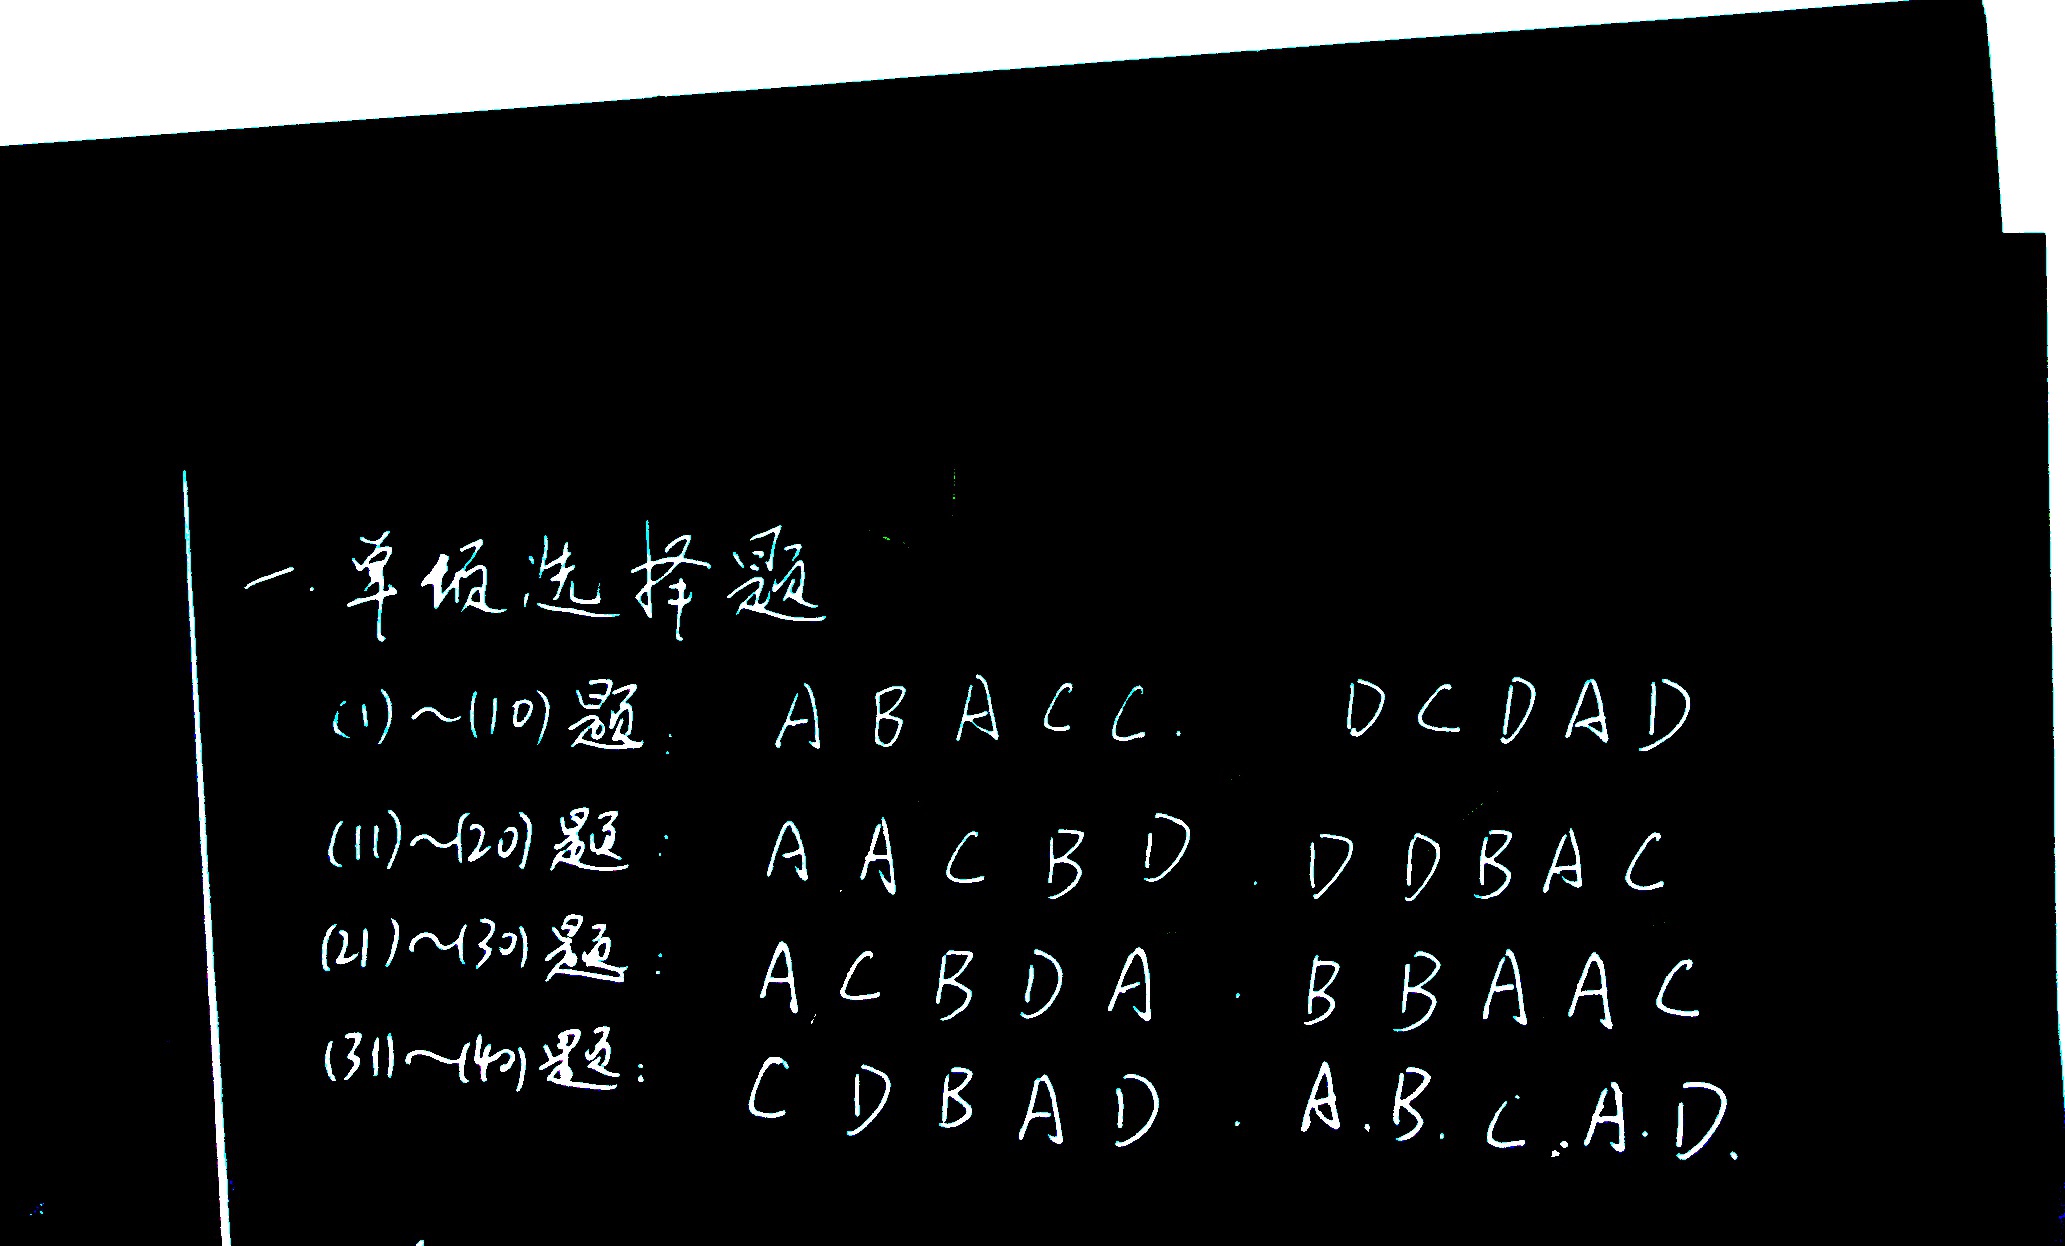 一.单项选择题
(1)~(10)题: A B A C C. D C D A D
(11)~(20)题: A A C B D . D D B A C
(21)~(30)题: A C B D A . B B A A C
(31)~(40)题: C D B A D . A.B.C.A.D.